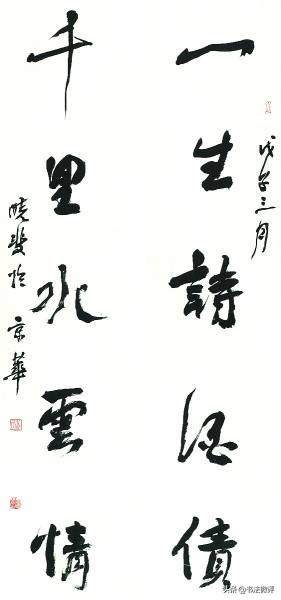 戊子三月
一生詩酒債
千里水雲情
曉斐於京華
头条 @书法微评